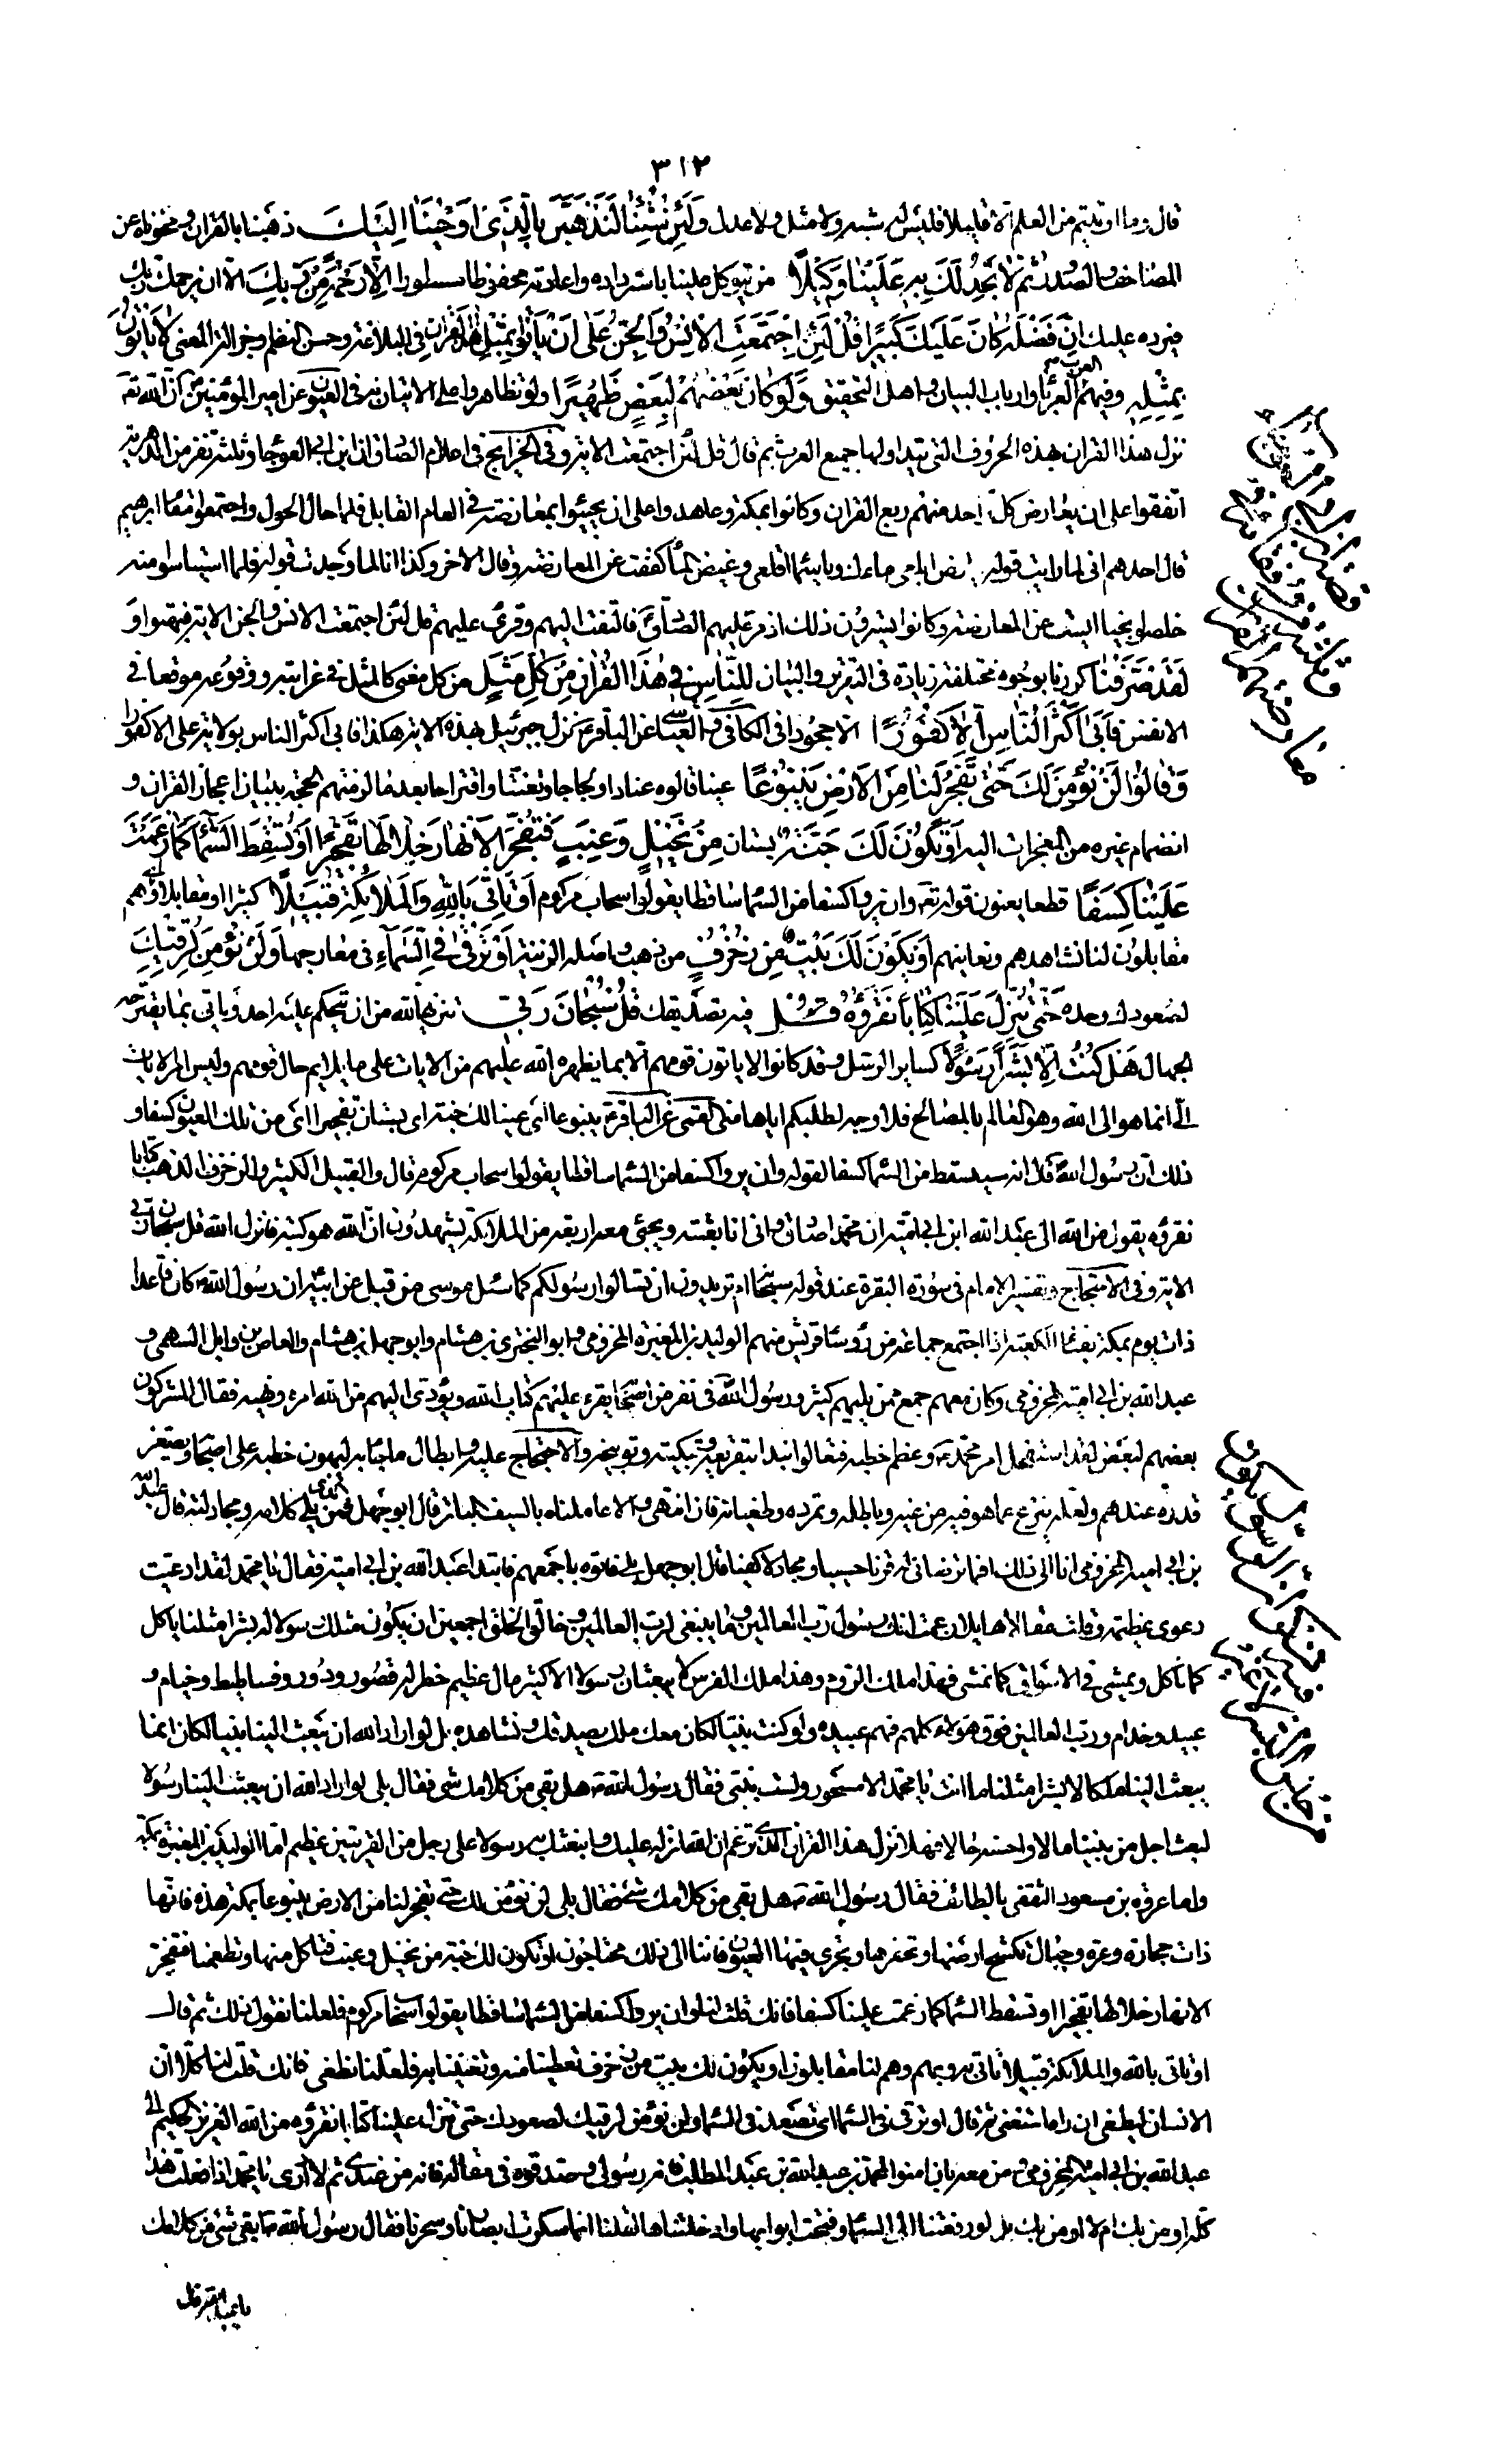 ٣١٢
قال وما اوتيتم من العلم الا قليلا فليس له شبه ولا مثل ولا عدل وَلَئِنْ شِئْنَا لَنَذْهَبَنَّ بِالَّذِي اَوْحَيْنَا اِلَيْكَ ذهبنا بالقران ومحوناه عن
المصاحف والصدور ثُمَّ لَا تَجِدُ لَكَ بِهِ عَلَيْنَا وَكِيلًا من يتوكل علينا باسترداده واعادته محفوظا مسطورا اِلَّا رَحْمَةً مِنْ رَبِّكَ الا ان يرحمك ربك
فيرده عليك اِنَّ فَضْلَهُ كَانَ عَلَيْكَ كَبِيرًا قُلْ لَئِنِ اجْتَمَعَتِ الْاِنْسُ وَالْجِنُّ عَلَى اَنْ يَأْتُوا بِمِثْلِ هٰذَا الْقُرْاٰنِ في البلاغة وحسن النظم وجزالة المعنى لَا يَأْتُونَ
بِمِثْلِهِ وفيهم العرب العرباء وارباب البيان واهل التحقيق وَلَوْ كَانَ بَعْضُهُمْ لِبَعْضٍ ظَهِيرًا ولو تظاهروا على الاتيان به في العيون عن امير المؤمنين ان الله تعه
نزل هذا القران بهذه الحروف التي يتداولها جميع العرب ثم قال قل لئن اجتمعت الاية وفي الخرايج في اعلام الصادق ان ابن ابي العوجا وثلثة نفر من الدهرية
اتفقوا على ان يعارض كل احد منهم ربع القران وكانوا بمكة وعاهدوا على ان يجيئوا بمعارضته في العام القابل فلما حال الحول واجتمعوا في مقام ابرهيم
قال احدهم اني لما رايت قوله يا ارض ابلعي ماءك ويا سماء اقلعي وغيض الماء كففت عن المعارضة وقال الاخر وكذا انا لما وجدت قوله فلما استيئسوا منه
خلصوا نجيا ايست عن المعارضة وكانوا يسترون ذلك اذ مر عليهم الصادق فالتفت اليهم وقرئ عليهم قل لئن اجتمعت الانس والجن الاية فبهتوا وَ
لَقَدْ صَرَّفْنَا كررنا بوجوه مختلفة زيادة في التقرير والبيان لِلنَّاسِ فِي هٰذَا الْقُرْاٰنِ مِنْ كُلِّ مَثَلٍ من كل معنى كالمثل في غرابته ووقوعه موقعا في
الانفس فَاَبٰى اَكْثَرُ النَّاسِ اِلَّا كُفُورًا الا جحودا في الكافي والعياشي عن الباقر نزل جبرئيل بهذه الاية هكذا فابى اكثر الناس بولاية علي الا كفورا
وَقَالُوا لَنْ نُؤْمِنَ لَكَ حَتّٰى تَفْجُرَ لَنَا مِنَ الْاَرْضِ يَنْبُوعًا عينا قالوه عنادا ولجاجا وتعنتا واقتراحا بعد ما لزمتهم الحجة ببيان اعجاز القران و
انضمام غيره من المعجزات اليه اَوْ تَكُونَ لَكَ جَنَّةٌ بستان مِنْ نَخِيلٍ وَعِنَبٍ فَتُفَجِّرَ الْاَنْهَارَ خِلَالَهَا تَفْجِيرًا اَوْ تُسْقِطَ السَّمَاءَ كَمَا زَعَمْتَ
عَلَيْنَا كِسَفًا قطعا يعنون قوله تعه وان يروا كسفا من السماء ساقطا يقولوا سحاب مركوم اَوْ تَأْتِيَ بِاللّٰهِ وَالْمَلَائِكَةِ قَبِيلًا كثيرا او مقابلا اي هم
مقابلون لنا نشاهدهم ونعاينهم اَوْ يَكُونَ لَكَ بَيْتٌ مِنْ زُخْرُفٍ من ذهب واصله الزينة اَوْ تَرْقٰى فِي السَّمَاءِ في معارجها وَلَنْ نُؤْمِنَ لِرُقِيِّكَ
لصعودك وحده حَتّٰى تُنَزِّلَ عَلَيْنَا كِتَابًا نَقْرَؤُهُ فيه تصديقك قُلْ سُبْحَانَ رَبِّي تنزيها لله من ان يتحكم عليه احد وياتي بما يقترحه
الجهال هَلْ كُنْتُ اِلَّا بَشَرًا رَسُولًا كساير الرسل وقد كانوا لا ياتون قومهم الا بما يظهره الله عليهم من الايات على ما يلايم حال قومهم وليس امر الايات
الي انما هو الى الله وهو العالم بالمصالح فلا وجه لطلبكم اياها مني القمي عن الباقر ينبوعا اي عينا لك جنة اي بستان تفجيرا اي من تلك العيون كسفا و
ذلك ان رسول الله قال انه سيسقط من السماء كسفا لقوله وان يروا كسفا من السماء ساقطا يقولوا سحاب مركوم قال والقبيل الكثير والزخرف الذهب كتابا
نقرؤه يقول من الله الى عبد الله ابن ابي امية ان محمدا صادق واني انا بعثته ويجئ معه اربعة من الملائكة يشهدون ان الله هو كتبه فانزل الله قل سبحان ربي
الاية وفي الاحتجاج وتفسير الامام في سورة البقرة عند قوله سبحانه ام تريدون ان تسالوا رسولكم كما سئل موسى من قبل عن ابيه ان رسول الله كان قاعدا
ذات يوم بمكة بفناء الكعبة اذا اجتمع جماعة من رؤساء قريش منهم الوليد بن المغيرة المخزومي وابو البختري بن هشام وابو جهل بن هشام والعاص بن وايل السهمي و
عبد الله بن ابي امية المخزومي وكان معهم جمع ممن يليهم كثير ورسول الله في نفر من اصحابه يقرء عليهم كتاب الله ويؤدي اليهم من الله امره ونهيه فقال المشركون
بعضهم لبعض لقد استفحل امر محمد وعظم خطبه فتعالوا نبدا بتقريعه وتبكيته وتوبيخه والاحتجاج عليه وابطال ما جاء به ليهون خطبه على اصحابه ويصغر
قدره عندهم ولعله ينزع عما هو فيه من غيه وباطله وتمرده وطغيانه فان انتهى والا عاملناه بالسيف الباتر قال ابو جهل فمن الذي يلي كلامه ومجادلته قال عبد الله
بن ابي امية المخزومي انا الى ذلك افما ترضاني له قرنا حسيبا ومجادلا كفيا قال ابو جهل بلى فاتوه باجمعهم فابتدا عبد الله بن ابي امية فقال يا محمد لقد ادعيت
دعوى عظيمة وقلت مقالا هايلا زعمت انك رسول رب العالمين وما ينبغي لرب العالمين وخالق الخلق اجمعين ان يكون مثلك رسولا له بشرا مثلنا ياكل
كما ناكل ويمشي في الاسواق كما نمشي فهذا ملك الروم وهذا ملك الفرس لا يبعثان رسولا الا كثير مال عظيم خطر له قصور ودور وفساطيط وخيام و
عبيد وخدام ورب العالمين فوق هؤلاء كلهم فهم عبيده ولو كنت نبيا لكان معك ملك يصدقك ونشاهده بل لو اراد الله ان يبعث الينا نبيا لكان انما
يبعث الينا ملكا لا بشرا مثلنا ما انت يا محمد الا مسحور ولست بنبي فقال رسول الله هل بقي من كلامك شئ فقال بلى لو اراد الله ان يبعث الينا رسولا
لبعث اجل من بيننا مالا واحسنه حالا فهلا نزل هذا القران الذي تزعم ان الله انزله عليك وابتعثك به رسولا على رجل من القريتين عظيم اما الوليد بن المغيرة بمكة
واما عروة بن مسعود الثقفي بالطائف فقال رسول الله هل بقي من كلامك شئ فقال بلى لن نؤمن لك حتى تفجر لنا من الارض ينبوعا بمكة هذه فانها
ذات حجارة وعرة وجبال تكسح ارضها وتحفرها وتجري فيها العيون فاننا الى ذلك محتاجون او تكون لك جنة من نخيل وعنب فتاكل منها وتطعمنا فتفجر
الانهار خلالها تفجيرا او تسقط السماء كما زعمت علينا كسفا فانك قلت لنا وان يروا كسفا من السماء ساقطا يقولوا سحاب مركوم فلعلنا نقول ذلك ثم قال
او تاتي بالله والملائكة قبيلا تاتي به وبهم وهم لنا مقابلون او يكون لك بيت من زخرف تعطينا منه وتغنينا به فلعلنا نطغى فانك قلت لنا كلا ان
الانسان ليطغى ان راه استغنى ثم قال او ترقى في السماء اي تصعد في السماء ولن نؤمن لرقيك لصعودك حتى تنزل علينا كتابا نقرؤه من الله العزيز الحكيم الى
عبد الله بن ابي امية المخزومي ومن معه بان امنوا بمحمد بن عبد الله بن عبد المطلب فانه رسولي وصدقوه في مقاله فانه من عندي ثم لا ادري يا محمد اذا فعلت هذا
كله اومن بك ام لا اومن بك بل لو رفعتنا الى السماء وفتحت ابوابها وادخلتناها لقلنا انما سكرت ابصارنا وسحرتنا فقال رسول الله ما بقي شئ من كلامك